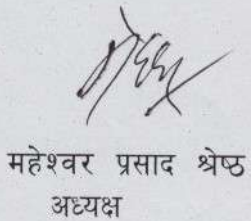 महेश्वर प्रसाद श्रेष्ठ
अध्यक्ष